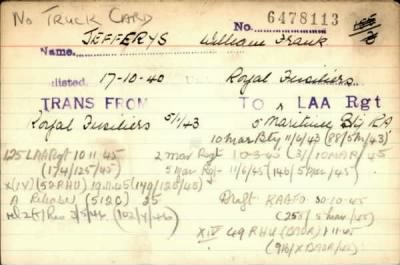 No TRUCK CARD
No. 6478113
Name. JEFFERYS William Frank
listed. 17-10-40 Royal Fusiliers
TRANS FROM TO LAA Rgt
Royal Fusiliers 5/1/43 5 Maritime Bty RA
10 Mar Bty 11/6/43 (88/5m/43)
125 LAA Rgt 10 11 45 2 Mar Regt 10-3-45 (31/10MAR/45
(174/125/45) 5 Mar Regt - 11/6/45 (146/5mar/45)
X(IV) (52RHU) 19.11.45 (149/126/45)
A Release (512C) 35 Draft RAAFO 30-10-45
(258/5mar/45)
XIV 49 RHU (BAOR) 1-11-45
(916/XBAOR/45)